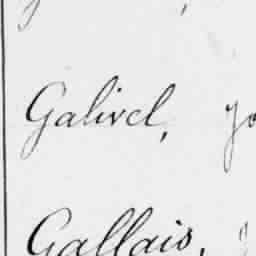 Galivel,
Gallais,